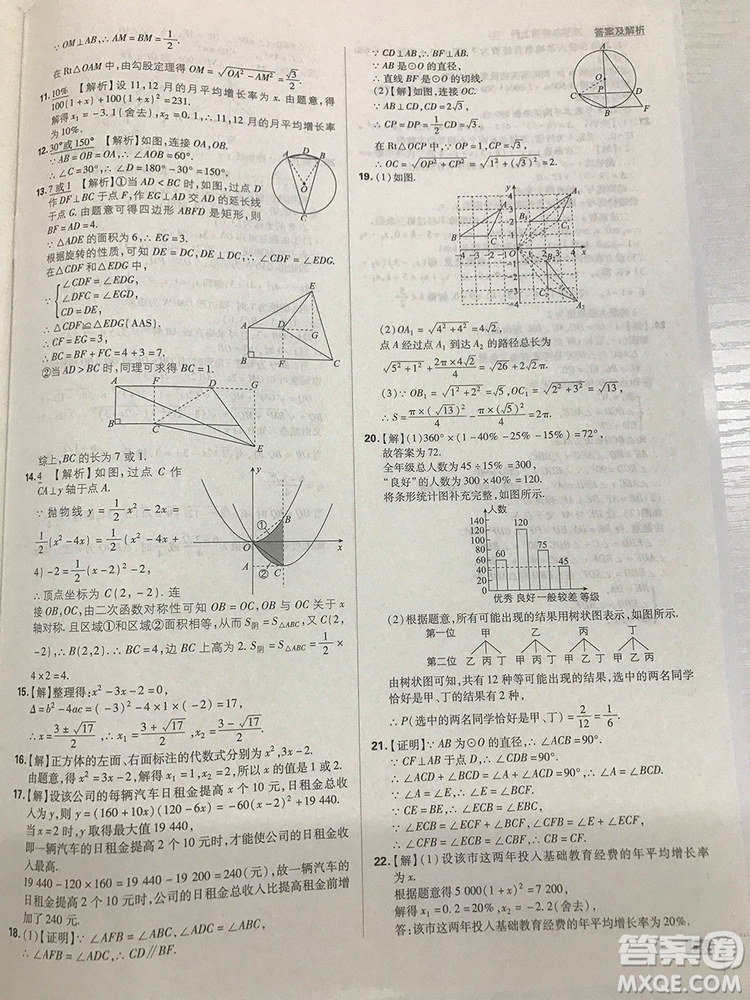 答案及解析
∵ OM⊥AB, ∴ AM = BM = 1/2.
在 Rt△OAM 中, 由勾股定理得 OM = √(OA² − AM²) = √3/2
11. 10% 【解析】设 11, 12 月的月平均增长率为 x. 由题意, 得
100(1+x) + 100(1+x)² = 231.
解得 x₁ = −3.1(舍去), x₂ = 0.1, ∴ 11, 12 月的月平均增长率
为 10%.
12. 30°或150° 【解析】如图, 连接 OA, OB.
∵ AB = OB = OA, ∴ ∠AOB = 60°.
∴ ∠C = 30°. ∴ ∠D = 150°.
13. 7或1 【解析】①当 AD < BC 时, 如图, 过点 D
作 DF⊥BC 于点 F, 作 EG⊥AD 交 AD 的延长线
于点 G. 由题意可得四边形 ABFD 是矩形, 则
BF = AD = 4.
∵ △ADE 的面积为 6, ∴ EG = 3.
根据旋转的性质, 可知 DE = DC, DE⊥DC, ∴ ∠CDF = ∠EDG.
在△CDF 和△EDG 中,
∵ { ∠CDF = ∠EDG,
∠DFC = ∠EGD,
CD = DE,
∴ △CDF≌△EDG(AAS).
∴ CF = EG = 3.
∴ BC = BF + CF = 7.
②当 AD > BC 时, 同理可求得 BC = 1.
A F D G
B C E
综上, BC 的长为 7 或 1.
14. 4 【解析】如图, 过点 C 作
CA⊥y 轴于点 A.
∵ 抛物线 y = 1/2 x² − 2x =
1/2(x² − 4x) = 1/2(x² − 4x +
4) − 2 = 1/2(x − 2)² − 2,
∴ 顶点坐标为 C(2, −2). 连
接 OB, OC, 由二次函数对称性可知 OB = OC, OB 与 OC 关于 x
轴对称. 且区域①与区域②面积相等, 从而 S阴 = S△ABC, 又 C(2,
−2), ∴ B(2, 2), ∴ BC = 4, BC 边上高为 2. ∴ S阴 = S△ABC = 1/2 ×
4 × 2 = 4.
15. 【解】整理得: x² − 3x − 2 = 0,
Δ = b² − 4ac = (−3)² − 4×1×(−2) = 17.
∴ x = (3 ± √17)/2, ∴ x₁ = (3 + √17)/2, x₂ = (3 − √17)/2.
16. 【解】正方体的左面、右面标注的代数式分别为 x², 3x − 2.
由题意, 得 x² = 3x − 2, 解得 x₁ = 1, x₂ = 2. 所以 x 的值为 1 或 2.
17. 【解】设该公司的每辆汽车日租金提高 x 个 10 元, 日租金总收
入为 y 元, 则 y = (160 + 10x)(120 − 6x) = −60(x − 2)² + 19 440,
∴ 当 x = 2 时, y 取最大值 19 440,
即一辆汽车的日租金提高 2 个 10 元时, 使公司的日租金总收
入最高.
19 440 − 120 × 160 = 240(元), 故一辆汽车的日租金
提高 2 个 10 元时, 公司的日租金总收入比日租金提高前增
加了 240 元.
18. (1)【证明】∵ ∠AFB = ∠ABC, ∠ABC = ∠ADC,
∴ ∠AFB = ∠ADC, ∴ CD∥BF.
∴ CD⊥AB, ∴ AB⊥BF.
∵ AB 是⊙O 的直径,
∴ 直线 BF 是⊙O 的切线.
(2)【解】如图, 连接 OC.
∵ AB⊥CD, CD = 2√3,
∴ CP = DP = √3.
在 Rt△OCP 中, ∵ OP = 1,
∴ OC = √(OP² + CP²) = √(1² + (√3)²) = 2.
19. (1)如图.
(2)OA₁ = √(4² + 4²) = 4√2,
点 A 经过点 A₁ 到达 A₂ 的路径总长为
√(5² + 1²) + (2π × 4√2)/4 = √26 + 2√2π.
(3)∵ OB₁ = √(1² + 2²) = √5, OC₁ = √(2² + 3²) = √13,
∴ S = π × (√13)²/4 − π × (√5)²/4 = 2π.
20. 【解】(1)360° × (1 − 40% − 25% − 15%) = 72°,
故答案为 72.
全年级总人数为 45 ÷ 15% = 300,
“良好”的人数为 300 × 40% = 120,
将条形统计图补充完整, 如图所示.
人数
140
120
100
80
60
40
20
0
60 120 75 45
优秀 良好 一般 较差 等级
(2)根据题意, 所有可能出现的结果用树状图表示, 如图所示.
第一位 甲 乙 丙 丁
第二位 乙 丙 丁 甲 丙 丁 甲 乙 丁 甲 乙 丙
由树状图可知, 共有 12 种等可能出现的结果, 选中的两名同学
恰好是甲、丁的结果有 2 种,
∴ P(选中的两名同学恰好是甲、丁) = 2/12 = 1/6.
21. 【证明】∵ AB 为⊙O 的直径, ∴ ∠ACB = 90°.
∵ CF⊥AB 于点 F, ∴ ∠AFC = 90°.
∴ ∠ACD + ∠DCB = ∠CAD + ∠ACD = 90°.
∴ ∠BCE = ∠BAC.
∵ CE = BE, ∴ ∠ECB = ∠CBE.
∴ ∠ECB = ∠ECF = ∠CBE = ∠BAC.
∴ ∠ECF = ∠BAC.
22. 【解】(1)设该市这两年投入基础教育经费的年平均增长率
为 x.
根据题意, 得 5 000(1+x)² = 7 200,
解得 x₁ = 0.2 = 20%, x₂ = −2.2(舍去).
答: 该市这两年投入基础教育经费的年平均增长率为 20%.
答案圈
MXQE.COM